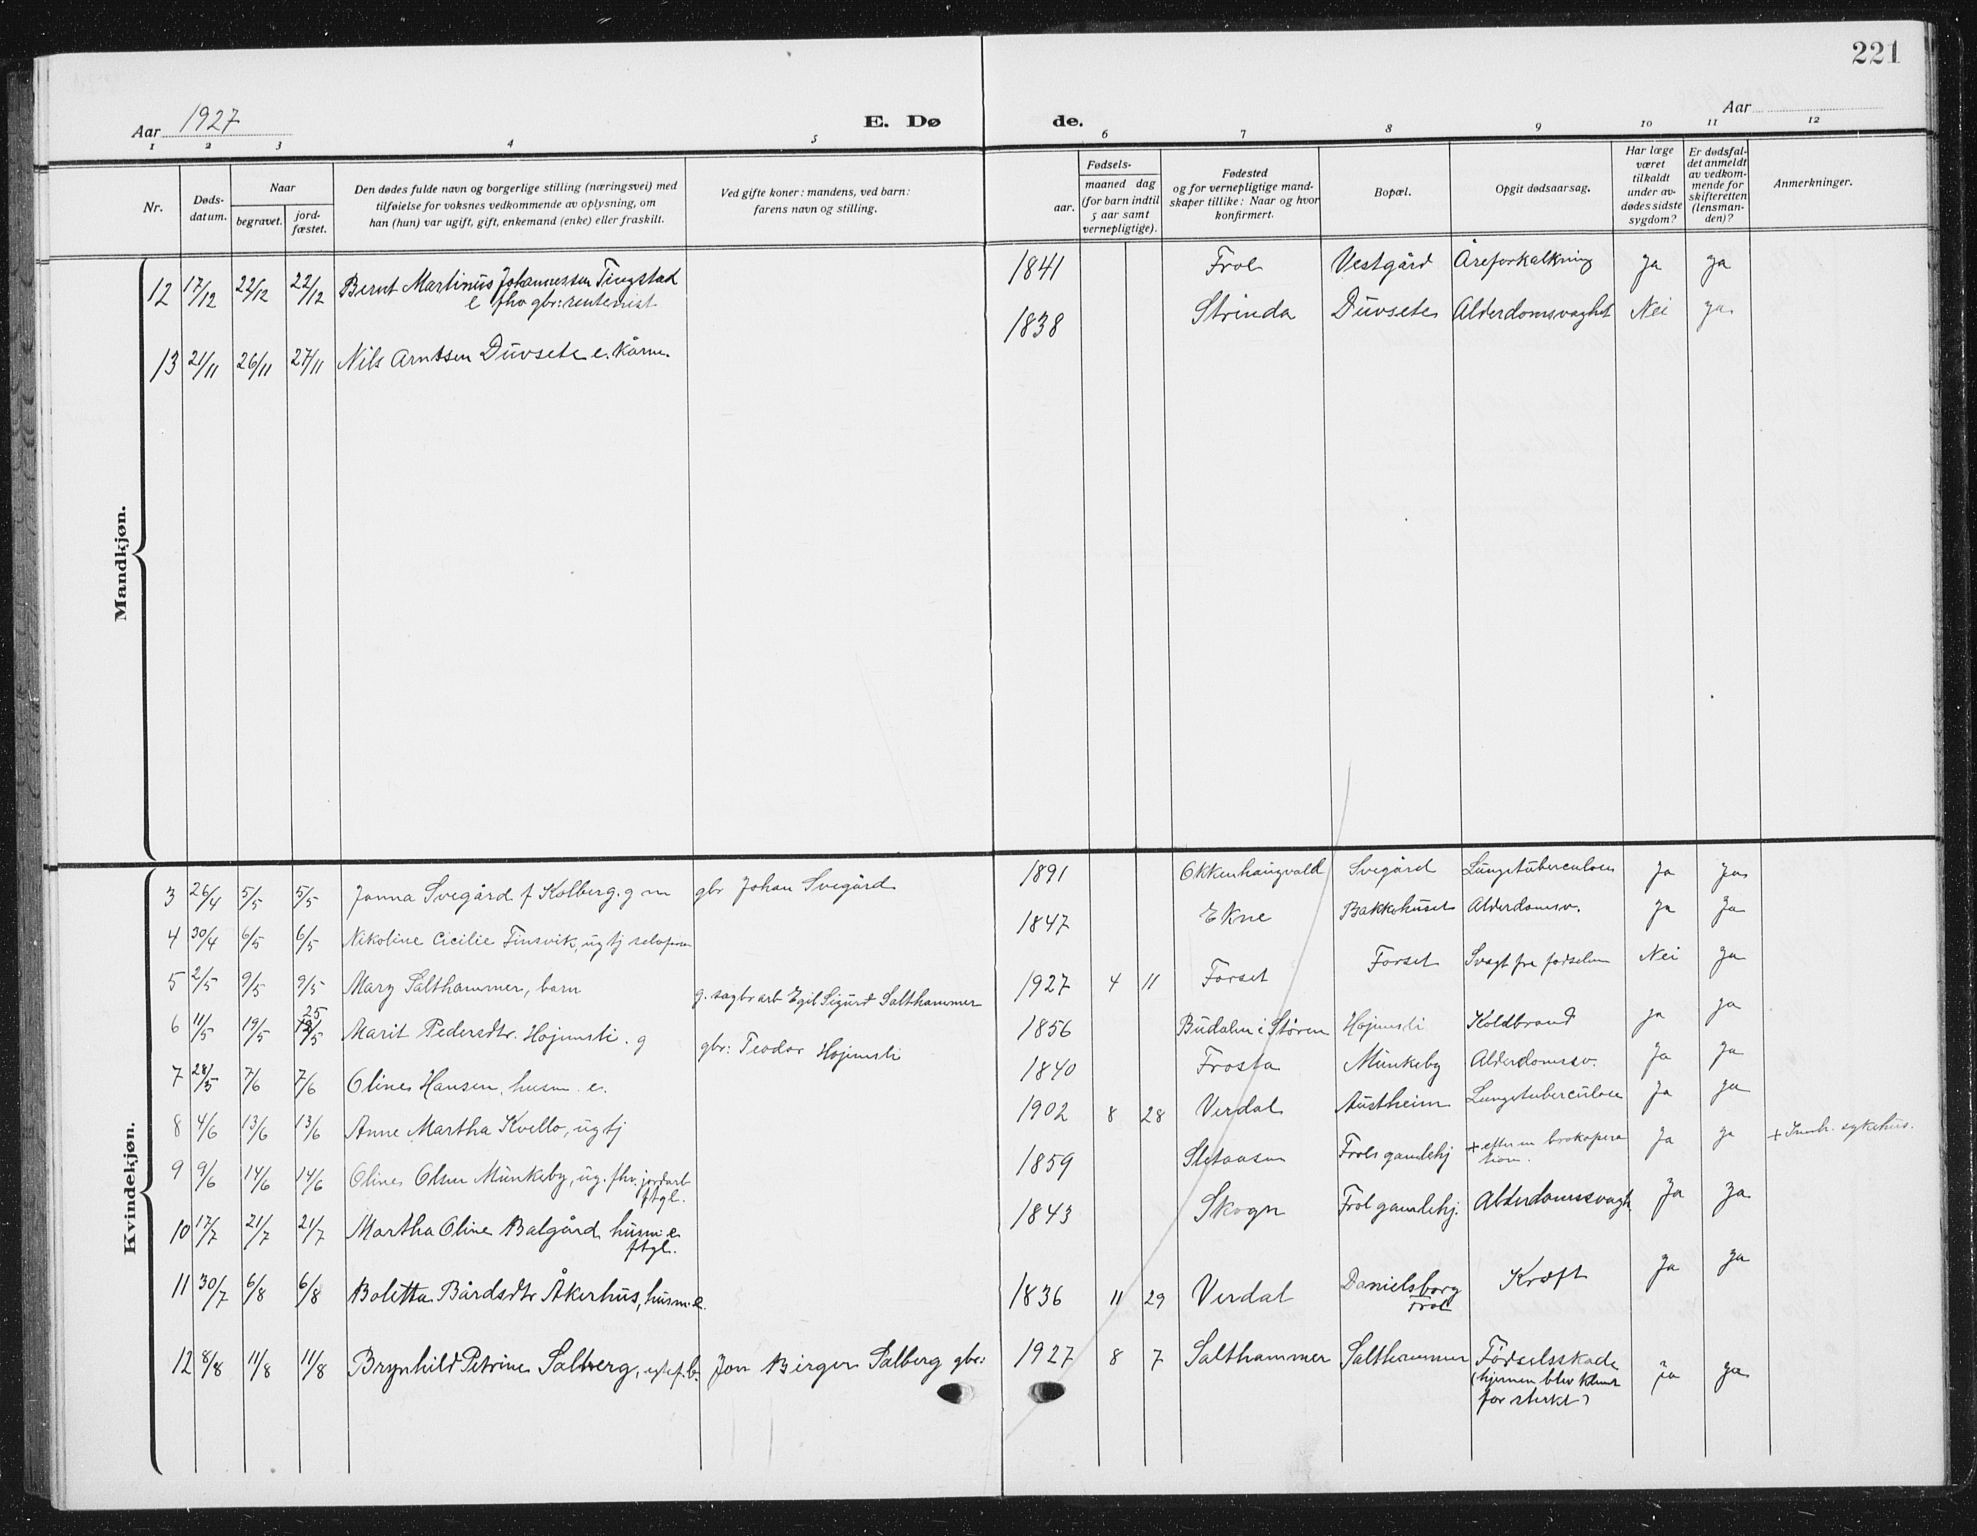 221
Aar 1927
E. Dø
de.
Aar
1 2 3 4 5 6 7 8 9 10 11 12
Nr.
Døds-
datum.
Naar
begravet.
jord-
fæstet.
Den dødes fulde navn og borgerlige stilling (næringsvei) med
tilføielse for voksnes vedkommende av oplysning, om
han (hun) var ugift, gift, enkemand (enke) eller fraskilt.
Ved gifte koner: mandens, ved barn:
farens navn og stilling.
Fødsels-
aar.
maaned dag
(for barn indtil
5 aar samt
vernepligtige).
Fødested
og for vernepligtige mand-
skaper tillike: Naar og hvor
konfirmert.
Bopæl.
Opgit dødsaarsag.
Har læge
været
tilkaldt
under av-
dødes sidste
sygdom?
Er dødsfal-
det anmeldt
av vedkom-
mende for
skifteretten
(lensman-
den)?
Anmerkninger.
Mandkjøn.
12 17/12 22/12 22/12 Bernt Martinus Johannessen Tingstad 1841 Frol Vestgård Åreforkalkning Ja Ja
e fhv gbr: rentenist
13 21/11 26/11 27/11 Nils Arntsen Duvsete e. kårm. 1838 Strinda Duvsete Alderdomsvaghet Nei ja
Kvindekjøn.
3 26/4 5/5 5/5 Janna Svegård f Kolberg. g m gbr Johan Svegård 1891 Okkenhaugvald Svegård Lungetuberculose Ja Ja
4 30/4 6/5 6/5 Nikoline Cicilie Finsvik, ug tj 1847 Ekne Bakkehuset Alderdomsv. Ja Ja
5 2/5 9/5 9/5 Mary Salthammer, barn g. sagbr arb Egil Sigurd Salthammer 1927 4 11 Forset Forset Svagt fra fødselen Nei Ja
25
6 11/5 19/5 /5 Marit Pedersdtr. Hojemsli. g gbr: Teodor Hojemsli 1856 Budalen i Støren Hojemsli Koldbrand Ja Ja
7 28/5 7/6 7/6 Oline Hansen, husm. e. 1840 Frosta Munkeby Alderdomsv. Ja Ja
8 4/6 13/6 13/6 Anne Martha Kvello, ug tj 1902 8 28 Verdal Austheim Lungetuberculose Ja Ja
9 9/6 14/6 14/6 Oline Olsen Munkeby, ug. fhv. jordarb 1859 Frols gamlehj + efter en brokopera Ja Ja + Innh. sykehus.
ftgl. tion.
10 17/7 21/7 21/7 Martha Oline Balgård husm e 1843 Skogn Frol gamlehj. Alderdomssvagh Ja Ja
ftgl.
11 30/7 6/8 6/8 Boletta Bårdsdtr Åkerhus, husm. e. 1836 11 29 Verdal Danielsborg Kræft Ja Ja
Frol
12 8/8 11/8 11/8 Brynhild Petrine Salberg, Jon Birger Salberg gbr: 1927 8 7 Salthammer Salthammer Fødselsskade ja ja
(hjernen blev klemt
for sterkt)